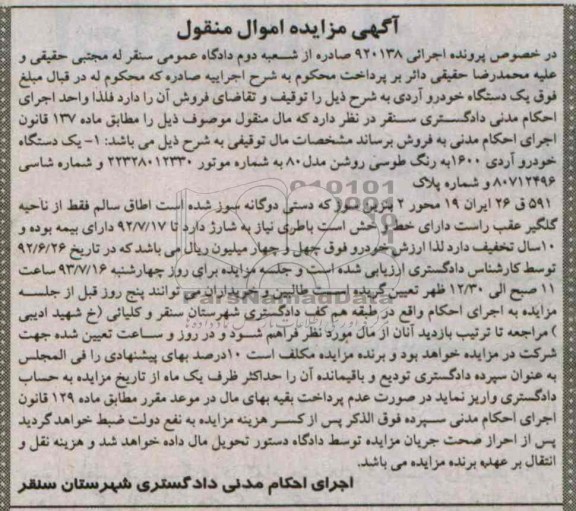 آگهی مزایده اموال منقول
در خصوص پرونده اجرائی ۹۲۰۱۳۸ صادره از شعبه دوم دادگاه عمومی سنقر له مجتبی حقیقی و
علیه محمدرضا حقیقی دائر بر پرداخت محکوم به شرح اجراییه صادره که محکوم له در قبال مبلغ
فوق یک دستگاه خودرو آردی به شرح ذیل را توقیف و تقاضای فروش آن را دارد فلذا واحد اجرای
احکام مدنی دادگستری سنقر در نظر دارد که مال منقول موصوف ذیل را مطابق ماده ۱۳۷ قانون
اجرای احکام مدنی به فروش برساند مشخصات مال توقیفی به شرح ذیل می باشد: ۱- یک دستگاه
خودرو آردی ۱۶۰۰به رنگ طوسی روشن مدل۸۰ به شماره موتور ۲۲۳۲۸۰۱۲۳۳۰ و شماره شاسی
۸۰۷۱۲۴۹۶ و شماره پلاک
۵۹۱ ق ۲۶ ایران ۱۹ محور ۲ بنزین سوز که دستی دوگانه سوز شده است اطاق سالم فقط از ناحیه
گلگیر عقب راست دارای خط و خش است باطری نیاز به شارژ دارد تا ۹۲/۷/۱۷ دارای بیمه بوده و
۱۰سال تخفیف دارد لذا ارزش خودرو فوق چهل و چهار میلیون ریال می باشد که در تاریخ ۹۲/۶/۲۶
توسط کارشناس دادگستری ارزیابی شده است و جلسه مزایده برای روز چهارشنبه ۹۳/۷/۱۶ ساعت
۱۱ صبح الی ۱۲/۳۰ ظهر تعیین گردیده است طالبین و خریداران می توانند پنج روز قبل از جلسه
مزایده به اجرای احکام واقع در طبقه هم کف دادگستری شهرستان سنقر و کلیائی (خ شهید ادیبی
) مراجعه تا ترتیب بازدید آنان از مال مورد نظر فراهم شود و در روز و ساعت تعیین شده جهت
شرکت در مزایده خواهد بود و برنده مزایده مکلف است ۱۰درصد بهای پیشنهادی را فی المجلس
به عنوان سپرده دادگستری تودیع و باقیمانده آن را حداکثر ظرف یک ماه از تاریخ مزایده به حساب
دادگستری واریز نماید در صورت عدم پرداخت بقیه بهای مال در موعد مقرر مطابق ماده ۱۲۹ قانون
اجرای احکام مدنی سپرده فوق الذکر پس از کسر هزینه مزایده به نفع دولت ضبط خواهد گردید
پس از احراز صحت جریان مزایده توسط دادگاه دستور تحویل مال داده خواهد شد و هزینه نقل و
انتقال بر عهده برنده مزایده می باشد.
اجرای احکام مدنی دادگستری شهرستان سنقر
ParsNamadData